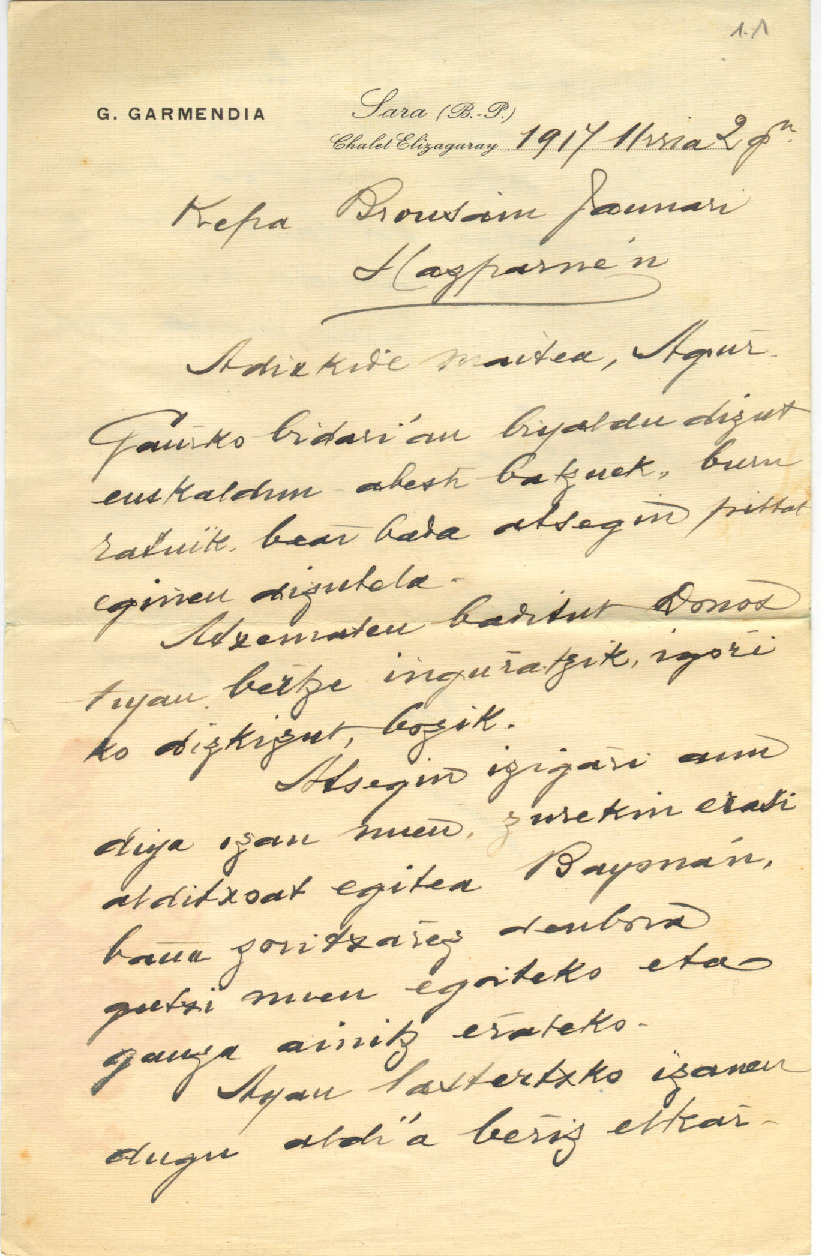 1.1
G. GARMENDIA
Sara (B.-P.)
Chalet Elizagaray 1917 Urria 2 gn.
Kepa Broussain Jaunari
Hazparne'n
Adixkide maitea, Agur̃.
Gaur̃ko bidari'an biyaldu dizut
euskaldun abesti batzuek, buru
bear̃ bada atsegin pittat
eginen dizutela.
Atzematen baditut Donos
tiyan, ber̃tze ingur̃atzik, igor̃i
ko dizkizut, bozik.
Atsegin izigar̃i aun
diya izan nuen, zurekin er̃asi
alditxoat egitea Bayonan,
bana zoritxar̃ez denbora
gutxi nuen egoiteko eta
gauza ainitz er̃ateko.
Ayan laxtertxko izanen
dugu aldi'a ber̃iz elkar̃-